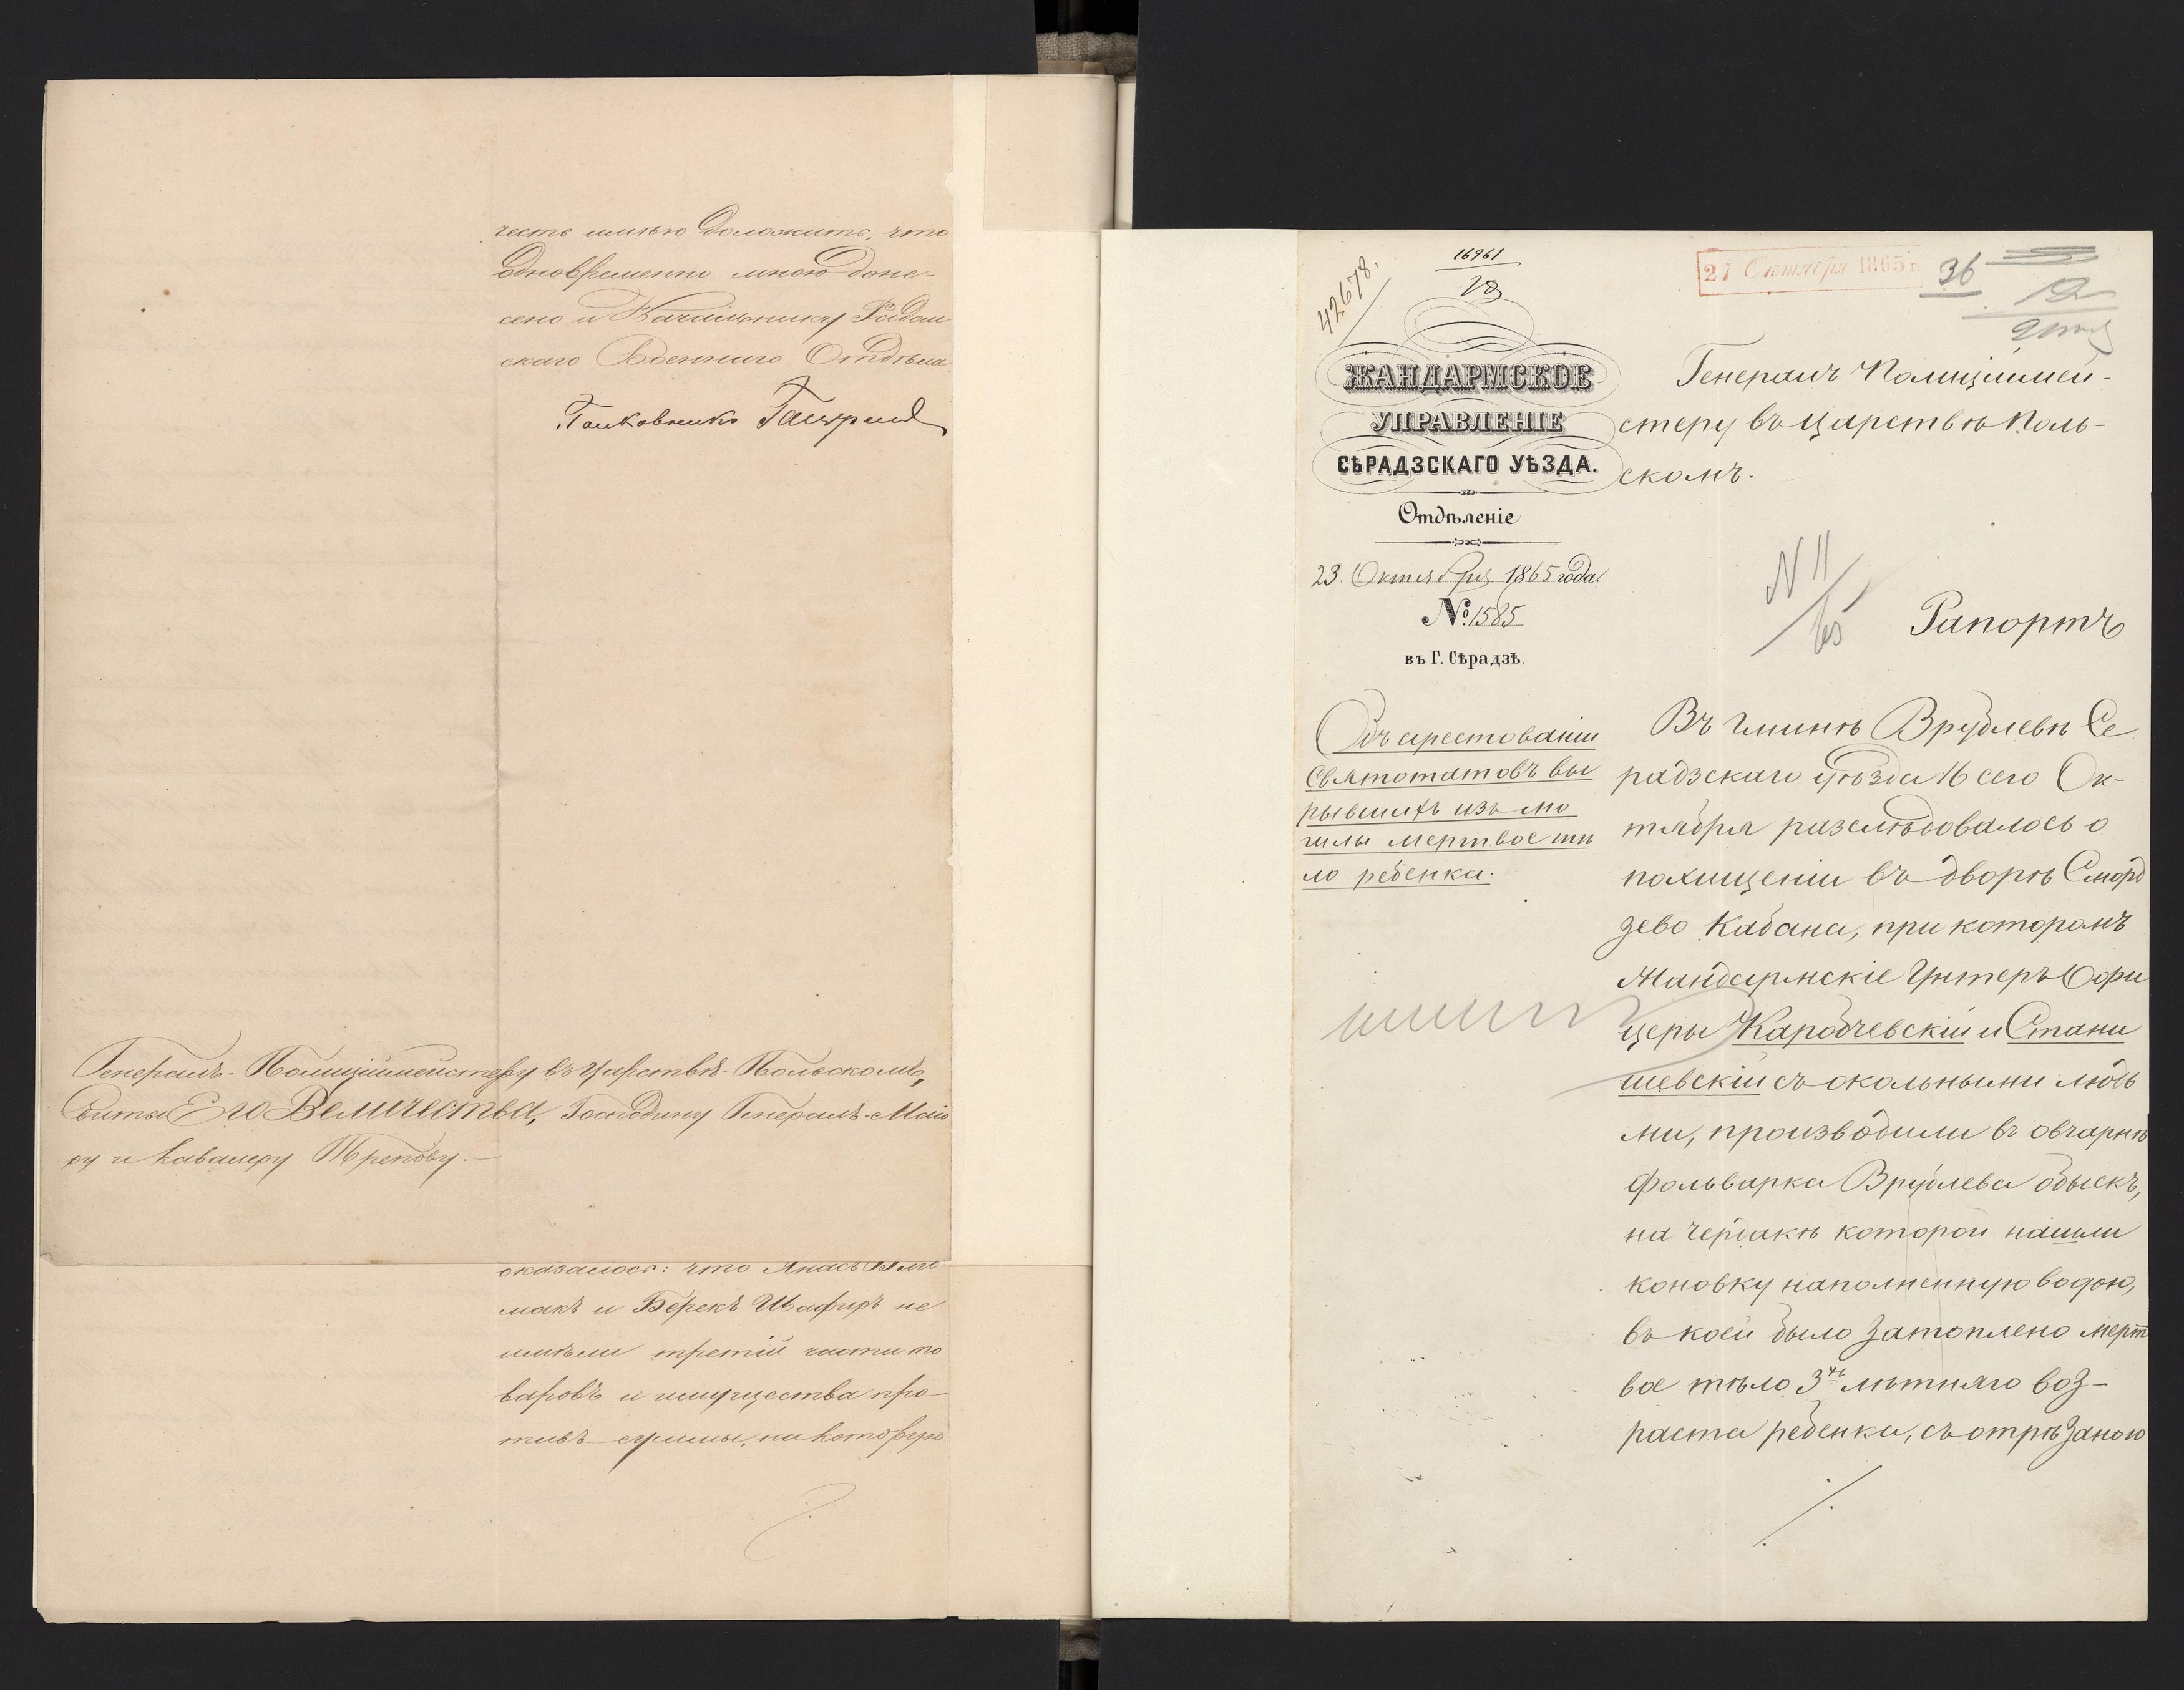 честь имѣю доложить, что
одновременно мною доне-
сено и Начальнику Радом
скаго Военнаго Отдѣла.
Полковникъ
Генералъ-Полиціймейстеру въ Царствѣ-Польскомъ,
Свиты Его Величества, Господину Генералъ-Маіо
ру и Кавалеру Трепову.-
оказалось: что
макъ и Берекъ Шафиръ не
имѣли третій части то
варовъ и имущества про-
тивъ суммы, на которую
42678.
16961
27 Октября 1865 г.
36
ЖАНДАРМСКОЕ
УПРАВЛЕНІЕ
СѢРАДЗСКАГО УѢЗДА.
Отдѣленіе
23. Октября 1865 года.
№ 1585
въ Г. Сѣрадзѣ.
Объ арестованіи
Святотатовъ вы
рывшихъ изъ мо
гилы мертвое тѣ
ло ребенка.
Генералъ Полиціймей-
стеру въ Царствѣ Поль-
скомъ.
N 11
65
Рапортъ
Въ гминѣ Врублевѣ Се
радзскаго уѣзда 16 сего Ок-
тября разслѣдовалось о
похищеніи въ дворѣ Смард
зево Кабана, при которомъ
Жандармскіе Унтеръ Офи
церы Каробчевскій и Стани
шевскій съ окольными людь
ми, производили въ овчарнѣ
фольварка Врублева обыскъ,
на чердакѣ которой нашли
коновку наполненную водою,
въ коей было затоплено мерт
вое тѣло 3хъ лѣтняго воз-
раста ребенка, съ отрѣзаною